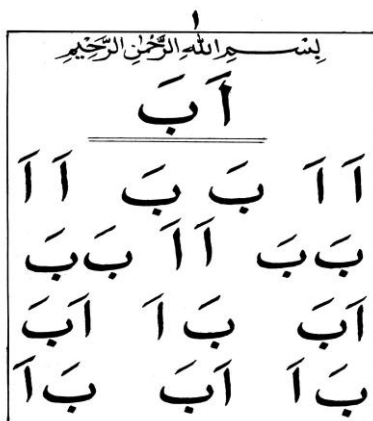 ١
بِسْمِ اللهِ الرَّحْمٰنِ الرَّحِيْمِ
اَ بَ
اَ اَ بَ بَ اَ اَ
بَ بَ اَ اَ بَ بَ
اَ بَ بَ اَ اَ بَ
بَ اَ اَ بَ بَ اَ